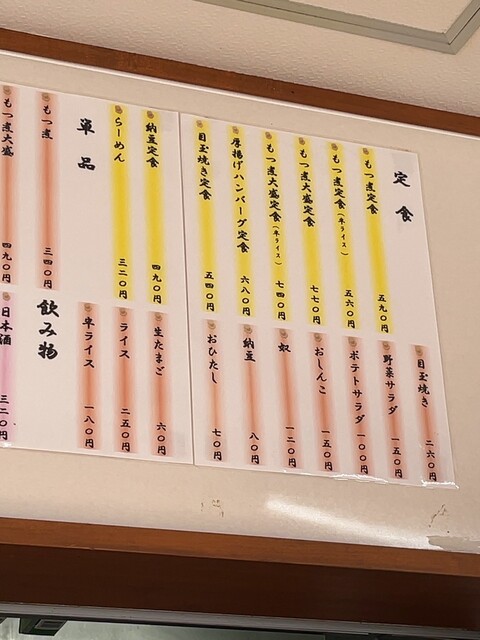 定食
もつ煮定食 五九〇円
もつ煮定食(半ライス) 五六〇円
もつ煮大盛定食 七七〇円
もつ煮大盛定食(半ライス) 七四〇円
厚揚げハンバーグ定食 六八〇円
目玉焼き定食 五四〇円
目玉焼き 二六〇円
野菜サラダ 一五〇円
ポテトサラダ 一〇〇円
おしんこ 一五〇円
奴 一二〇円
納豆 八〇円
おひたし 七〇円
納豆定食 四九〇円
らーめん 三二〇円
単品
もつ煮 三四〇円
もつ煮大盛 四九〇円
生たまご 六〇円
ライス 二五〇円
半ライス 一八〇円
飲み物
日本酒 三二〇円